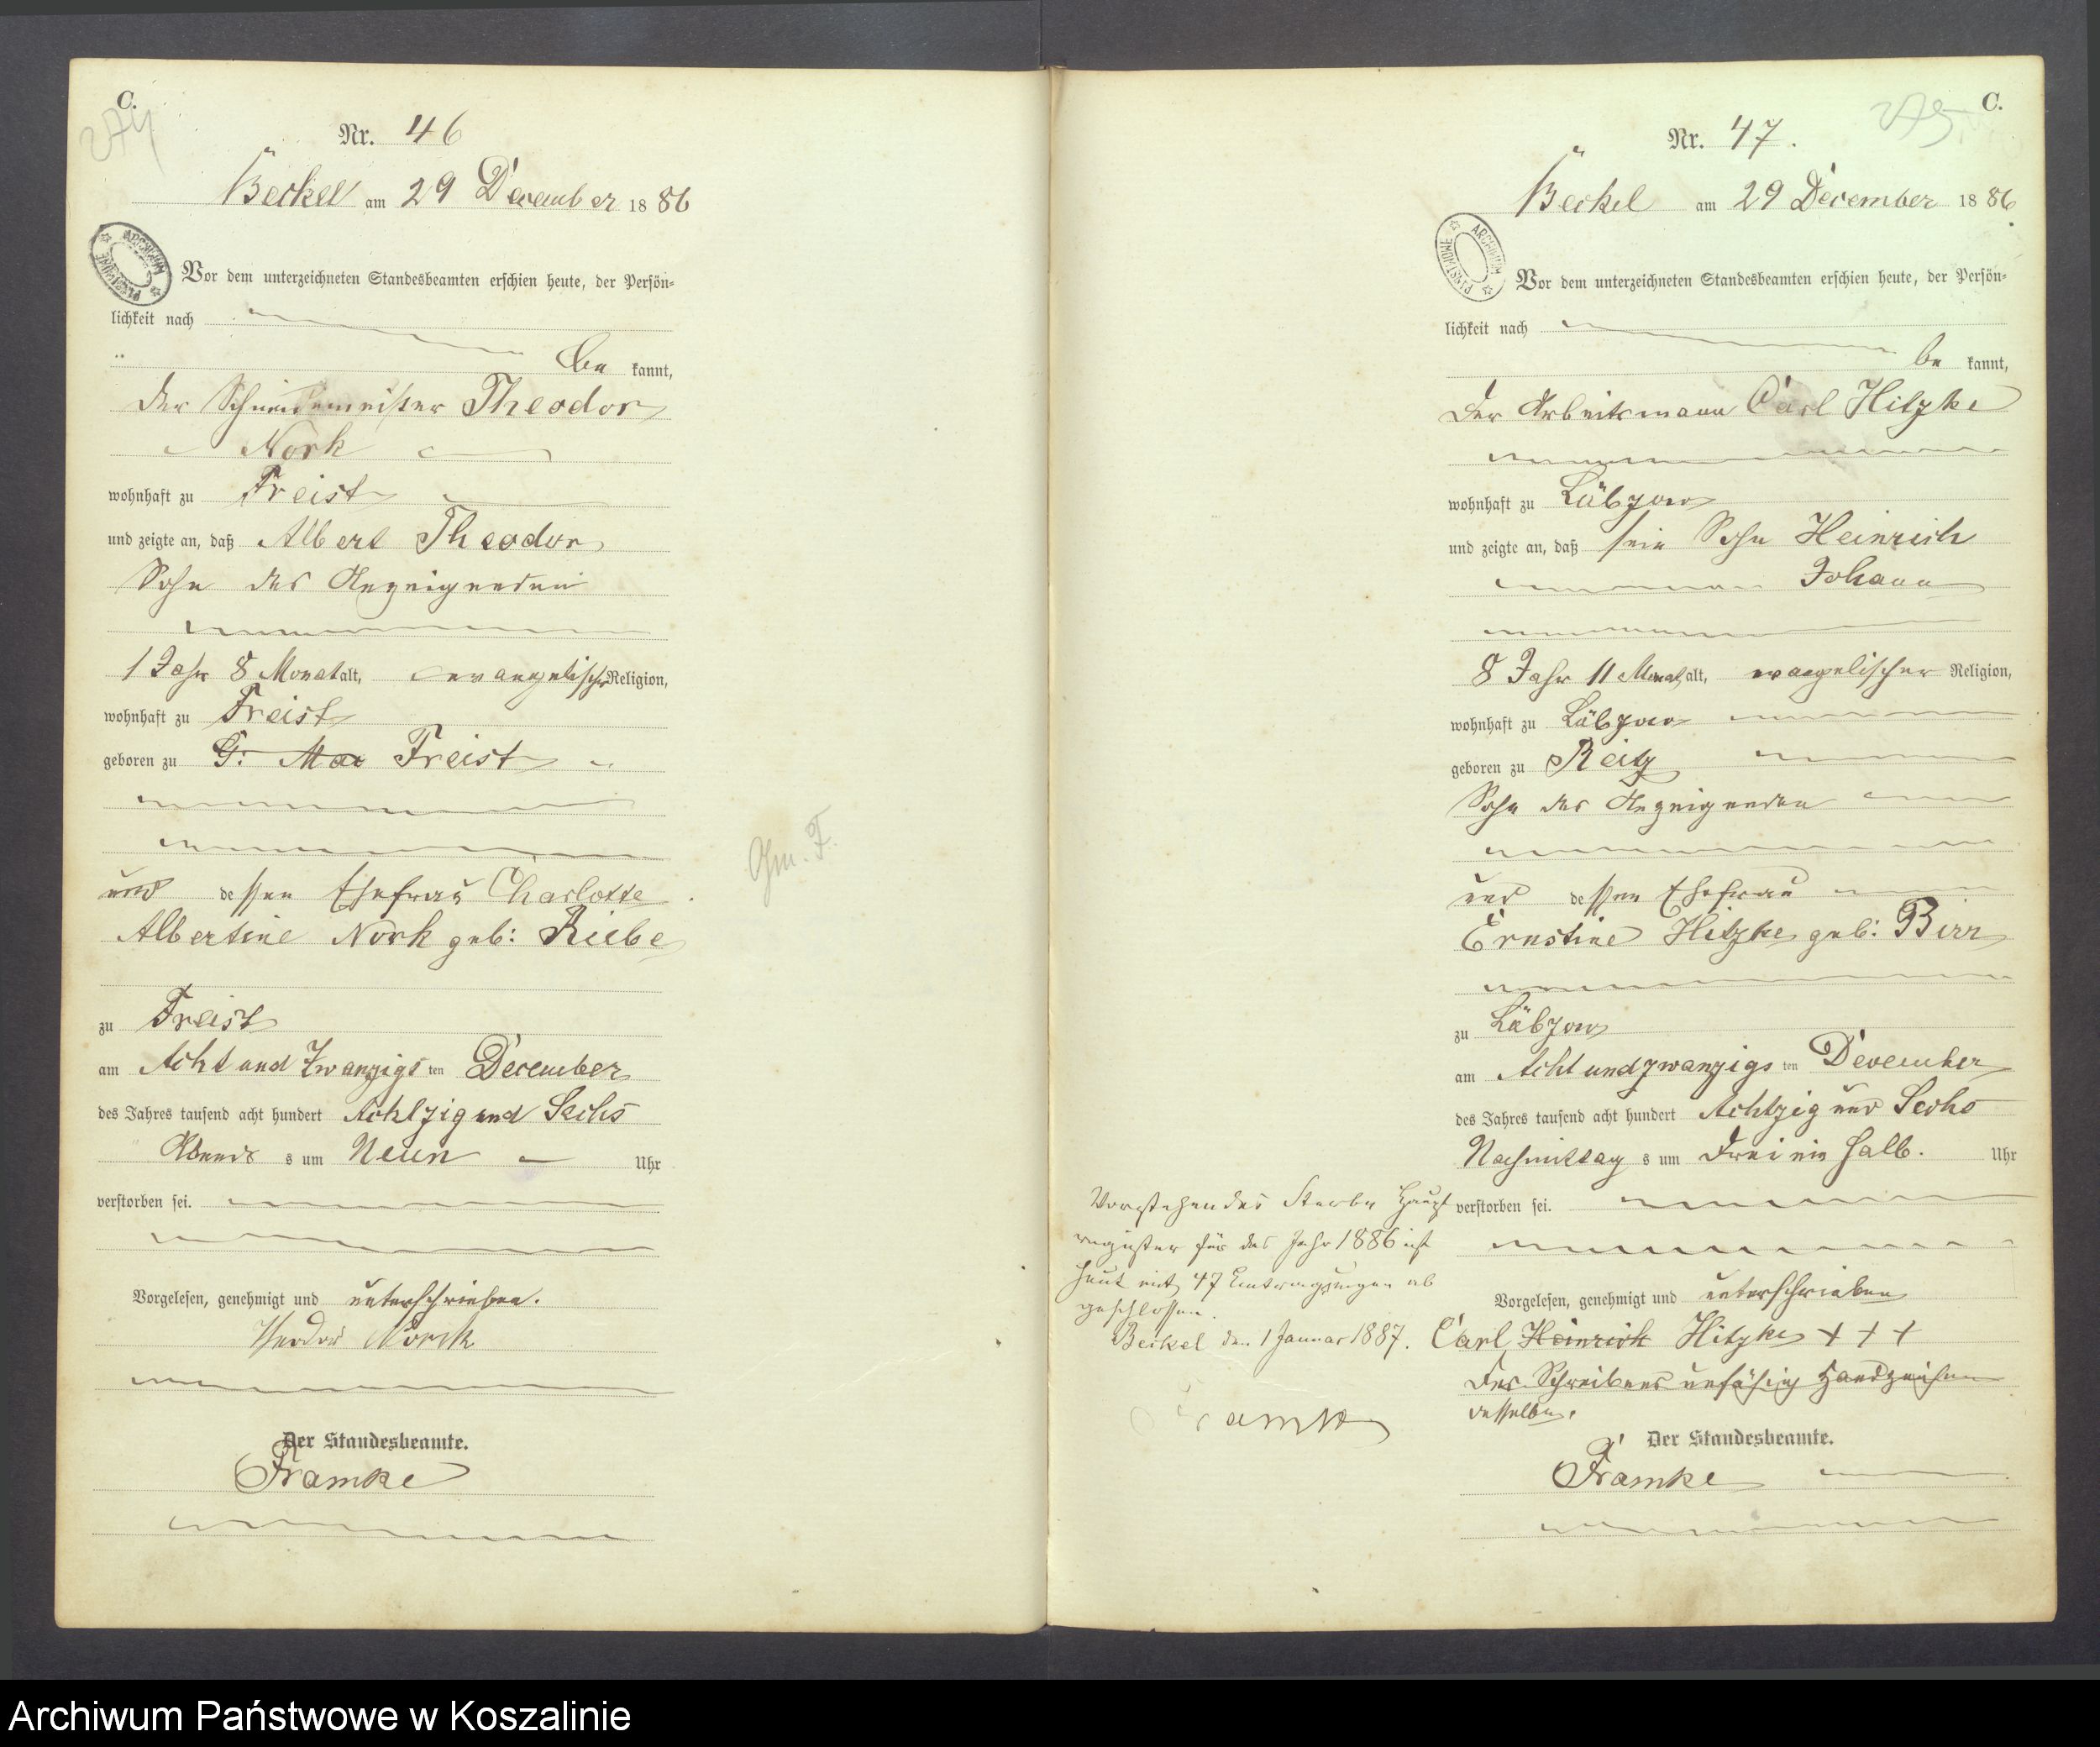 C.
274
Nr. 46
Beckel am 29 December 1886
ARCHIWUM PAŃSTWOWE
Vor dem unterzeichneten Standesbeamten erschien heute, der Persön-
lichkeit nach
be kannt,
der Schneidemeister Theodor
Nork
wohnhaft zu Freist
und zeigte an, daß Albert Theodor
Sohn des Anzeigenden
1 Jahr 8 Monat alt, evangelischer Religion,
wohnhaft zu Freist
geboren zu G: Mac Freist
und dessen Ehefrau Charlotte
Albertine Nork geb: Riebe
zu Freist
am Acht und Zwanzigsten December
des Jahres tausend acht hundert Achtzig und Sechs
Abends um Neun Uhr
verstorben sei.
Vorgelesen, genehmigt und unterschrieben.
Theodor Norck
Der Standesbeamte.
Framke
Gm. F.
C.
275
Nr. 47.
Beckel am 29 December 1886
ARCHIWUM PAŃSTWOWE
Vor dem unterzeichneten Standesbeamten erschien heute, der Persön-
lichkeit nach
be kannt,
der Arbeitsmann Carl Hitzke
wohnhaft zu Lübzow
und zeigte an, daß sein Sohn Heinrich
Johann
8 Jahr 11 Monat alt, evangelischer Religion,
wohnhaft zu Lübzow
geboren zu Reitz
Sohn des Anzeigenden
und dessen Ehefrau
Ernstine Hitzke geb: Birr
zu Lübzow
am Acht und zwanzigsten December
des Jahres tausend acht hundert Achtzig und Sechs
Nachmittags um Drei ein halb. Uhr
verstorben sei.
Vorgelesen, genehmigt und unterschrieben
Carl Heinrich Hitzke + + +
Des Schreibens unfähig Handzeichen
desselben.
Der Standesbeamte.
Framke
Vorstehendes Sterbe Haupt
register für das Jahr 1886 ist
heut mit 47 Eintragungen ab
geschlossen.
Beckel den 1 Januar 1887.
Framke
Archiwum Państwowe w Koszalinie